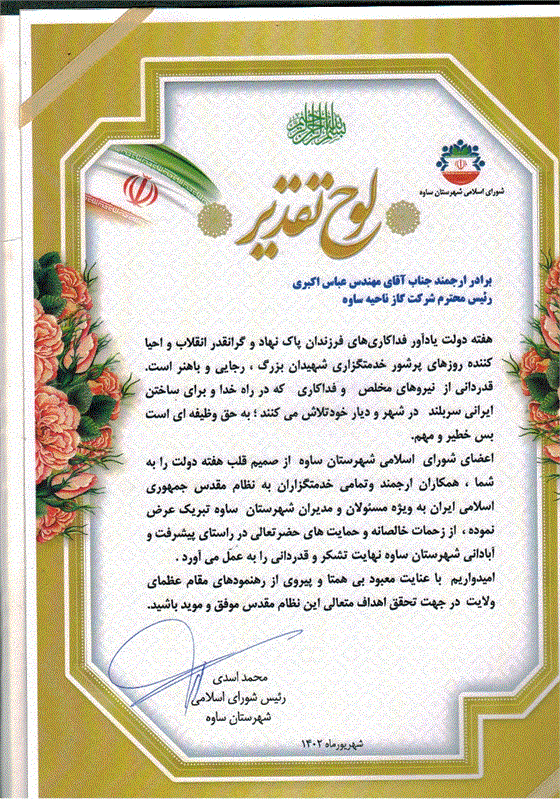 بسم الله الرحمن الرحیم
شورای اسلامی شهرستان ساوه
لوح تقدیر
برادر ارجمند جناب آقای مهندس عباس اکبری
رئیس محترم شرکت گاز ناحیه ساوه
هفته دولت یادآور فداکاری‌های فرزندان پاک نهاد و گرانقدر انقلاب و احیا
کننده روزهای پرشور خدمتگزاری شهیدان بزرگ ، رجایی و باهنر است.
قدردانی از نیروهای مخلص و فداکاری که در راه خدا و برای ساختن
ایرانی سربلند در شهر و دیار خودتلاش می کنند ؛ به حق وظیفه ای است
بس خطیر و مهم.
اعضای شورای اسلامی شهرستان ساوه از صمیم قلب هفته دولت را به
شما ، همکاران ارجمند وتمامی خدمتگزاران به نظام مقدس جمهوری
اسلامی ایران به ویژه مسئولان و مدیران شهرستان ساوه تبریک عرض
نموده ، از زحمات خالصانه و حمایت های حضرتعالی در راستای پیشرفت و
آبادانی شهرستان ساوه نهایت تشکر و قدردانی را به عمل می آورد .
امیدواریم با عنایت معبود بی همتا و پیروی از رهنمودهای مقام عظمای
ولایت در جهت تحقق اهداف متعالی این نظام مقدس موفق و موید باشید.
محمد اسدی
رئیس شورای اسلامی
شهرستان ساوه
شهریورماه ۱۴۰۲